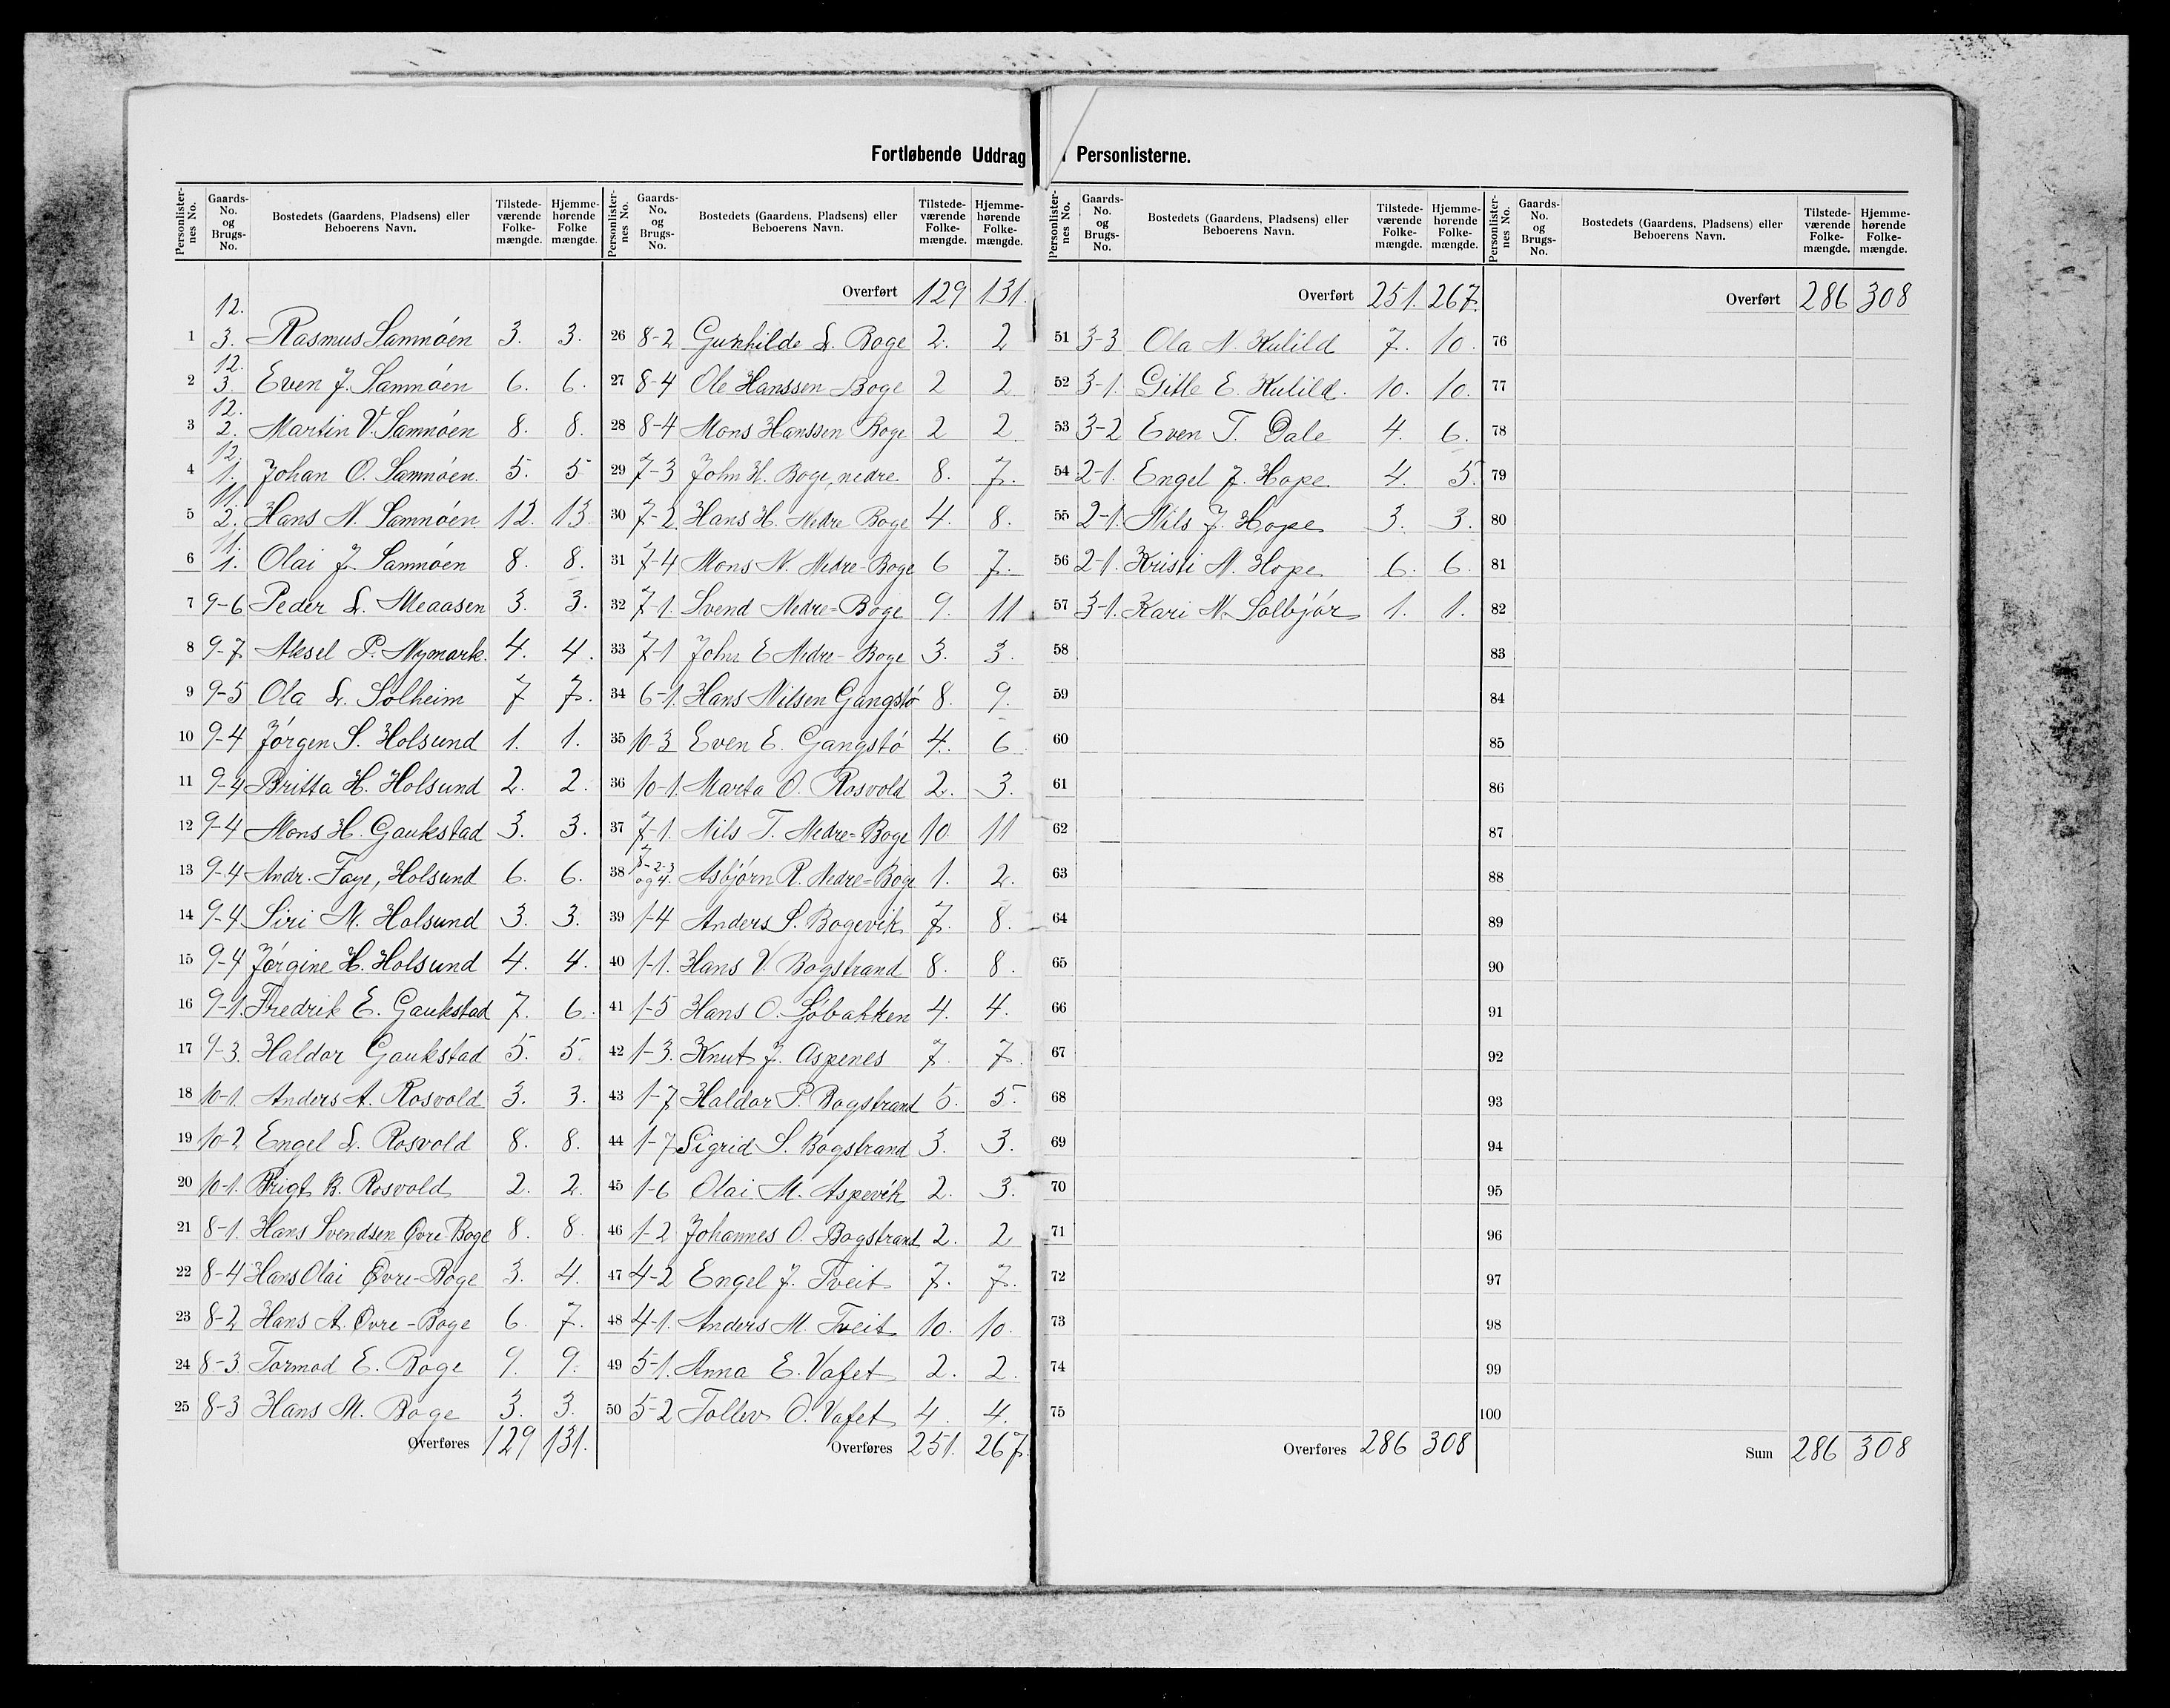 Fortløbende Uddrag Personlisterne.
Personlisternes No. Gaards-No. og Brugs-No. Bostedets (Gaardens, Pladsens) eller Beboerens Navn. Tilstedeværende Folkemængde. Hjemmehørende Folkemængde.
12.
1 3. Rasmus Samnøen 3. 3.
12.
2 3. Even J. Samnøen 6. 6.
12.
3 2. Martin V. Samnøen 8. 8.
12.
4 1. Johan O. Samnøen. 5. 5
11.
5 2. Hans N. Samnøen 12. 13.
11.
6 1. Olai J. Samnøen 8. 8.
7 9-6 Peder L. Meaasen 3. 3.
8 9-7 Aksel P. Nymark. 4. 4.
9 9-5 Ola L. Solheim 7 7.
10 9-4 Jørgen S. Holsund 1. 1.
11 9-4 Britta H. Holsund 2. 2.
12 9-4 Mons H. Gaukstad 3. 3.
13 9-4 Andr. Faye, Holsund 6. 6.
14 9-4 Siri M. Holsund 3. 3.
15 9-4 Jørgine H. Holsund 4. 4.
16 9-1. Fredrik E. Gaukstad 7. 6.
17 9-3. Haldor Gaukstad 5. 5.
18 10-1. Anders A. Rosvold 3. 3.
19 10-2 Engel L. Rosvold 8. 8.
20 10-1. Brigt B. Rosvold 2. 2.
21 8-1. Hans Svendsen Øvre-Boge 8. 8.
22 8-4 Hans Olai Øvre-Boge 3. 4.
23 8-2 Hans A. Øvre-Boge 6. 7.
24 8-3 Tormod E. Boge 9. 9.
25 8-3 Hans M. Boge 3. 3.
Overføres 129 131.
Personlisternes No. Gaards-No. og Brugs-No. Bostedets (Gaardens, Pladsens) eller Beboerens Navn. Tilstedeværende Folkemængde. Hjemmehørende Folkemængde.
Overført 129 131.
26 8-2 Gunhilde L. Boge 2. 2
27 8-4 Ole Hanssen Boge 2 2
28 8-4 Mons Hanssen Boge 2 2
29 7-3 John H. Boge, nedre 8. 7.
30 7-2 Hans H. Nedre Boge 4. 8.
31 7-4 Mons N. Nedre-Boge 6 7.
32 7-1. Svend Nedre-Boge 9. 11
33 7-1 John E Nedre-Boge 3. 3.
34 6-1. Hans Nilsen Gangstø 8. 9.
35 10-3 Even E. Gangstø 4. 6
36 10-1. Marta O. Rosvold 2. 3.
37 7-1. Nils T. Nedre-Boge 10. 11
38 -2-3 og 4. Asbjørn R. Nedre-Boge 1. 2.
39 1-4 Anders S. Bogevik 7. 8.
40 1-1. Hans V. Bogstrand 8. 8.
41 1-5 Hans O. Sjøbakken 4. 4.
42 1-3. Knut J. Aspenes 7. 7.
43 1-7 Haldor P. Bogstrand 5. 5.
44 1-7 Sigrid S. Bogstrand 3. 3.
45 1-6 Olai M. Aspevik 2. 3.
46 1-2 Johannes O. Bogstrand 2. 2
47 4-2 Engel J. Tveit 7. 7.
48 4-1. Anders M. Tveit 10. 10.
49 5-1. Anna E. Vafet 2. 2.
50 5-2 Tollev O. Vafet 4. 4.
Overføres 251. 267.
Personlisternes No. Gaards-No. og Brugs-No. Bostedets (Gaardens, Pladsens) eller Beboerens Navn. Tilstedeværende Folkemængde. Hjemmehørende Folkemængde.
Overført 251. 267.
51 3-3 Ola N. Kulild 7. 10.
52 3-1. Gitle E. Kulild. 10. 10.
53 3-2 Even T. Dale 4. 6.
54 2-1. Engel J. Hope 4. 5.
55 2-1. Nils J. Hope 3. 3.
56 2-1. Kristi N. Hope 6. 6.
57 3-1. Kari N. Solbjør 1. 1.
58
59
60
61
62
63
64
65
66
67
68
69
70
71
72
73
74
75
Overføres 286 308
Personlisternes No. Gaards-No. og Brugs-No. Bostedets (Gaardens, Pladsens) eller Beboerens Navn. Tilstedeværende Folkemængde. Hjemmehørende Folkemængde.
Overført 286 308
76
77
78
79
80
81
82
83
84
85
86
87
88
89
90
91
92
93
94
95
96
97
98
99
100
Sum 286 308